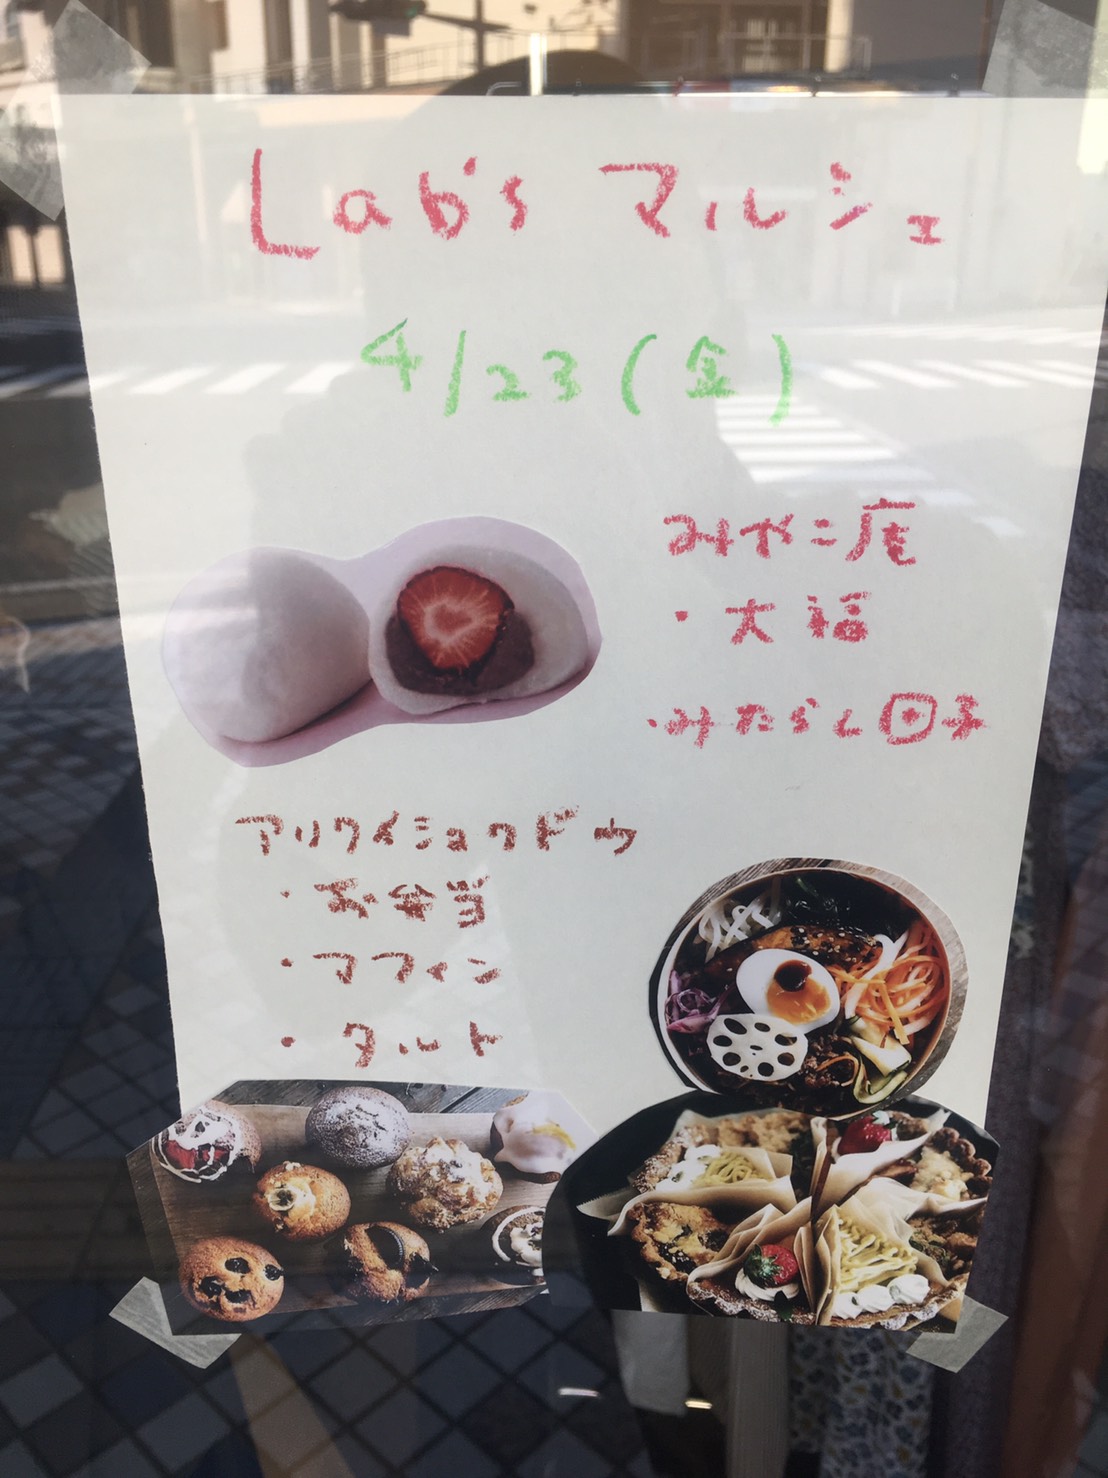 Lab's マルシェ
4/23(金)
みやこ庵
・大福
・みたらし団子
アリワイショクドウ
・お弁当
・マフィン
・タルト